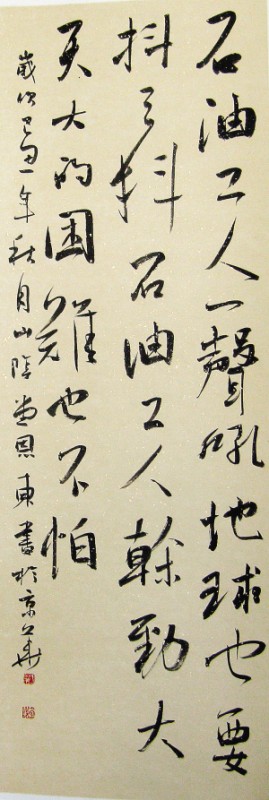 石油工人一聲吼地球也要
抖三抖石油工人幹勁大
天大的困難也不怕
歲次己丑年秋月山陰恩東書於京華